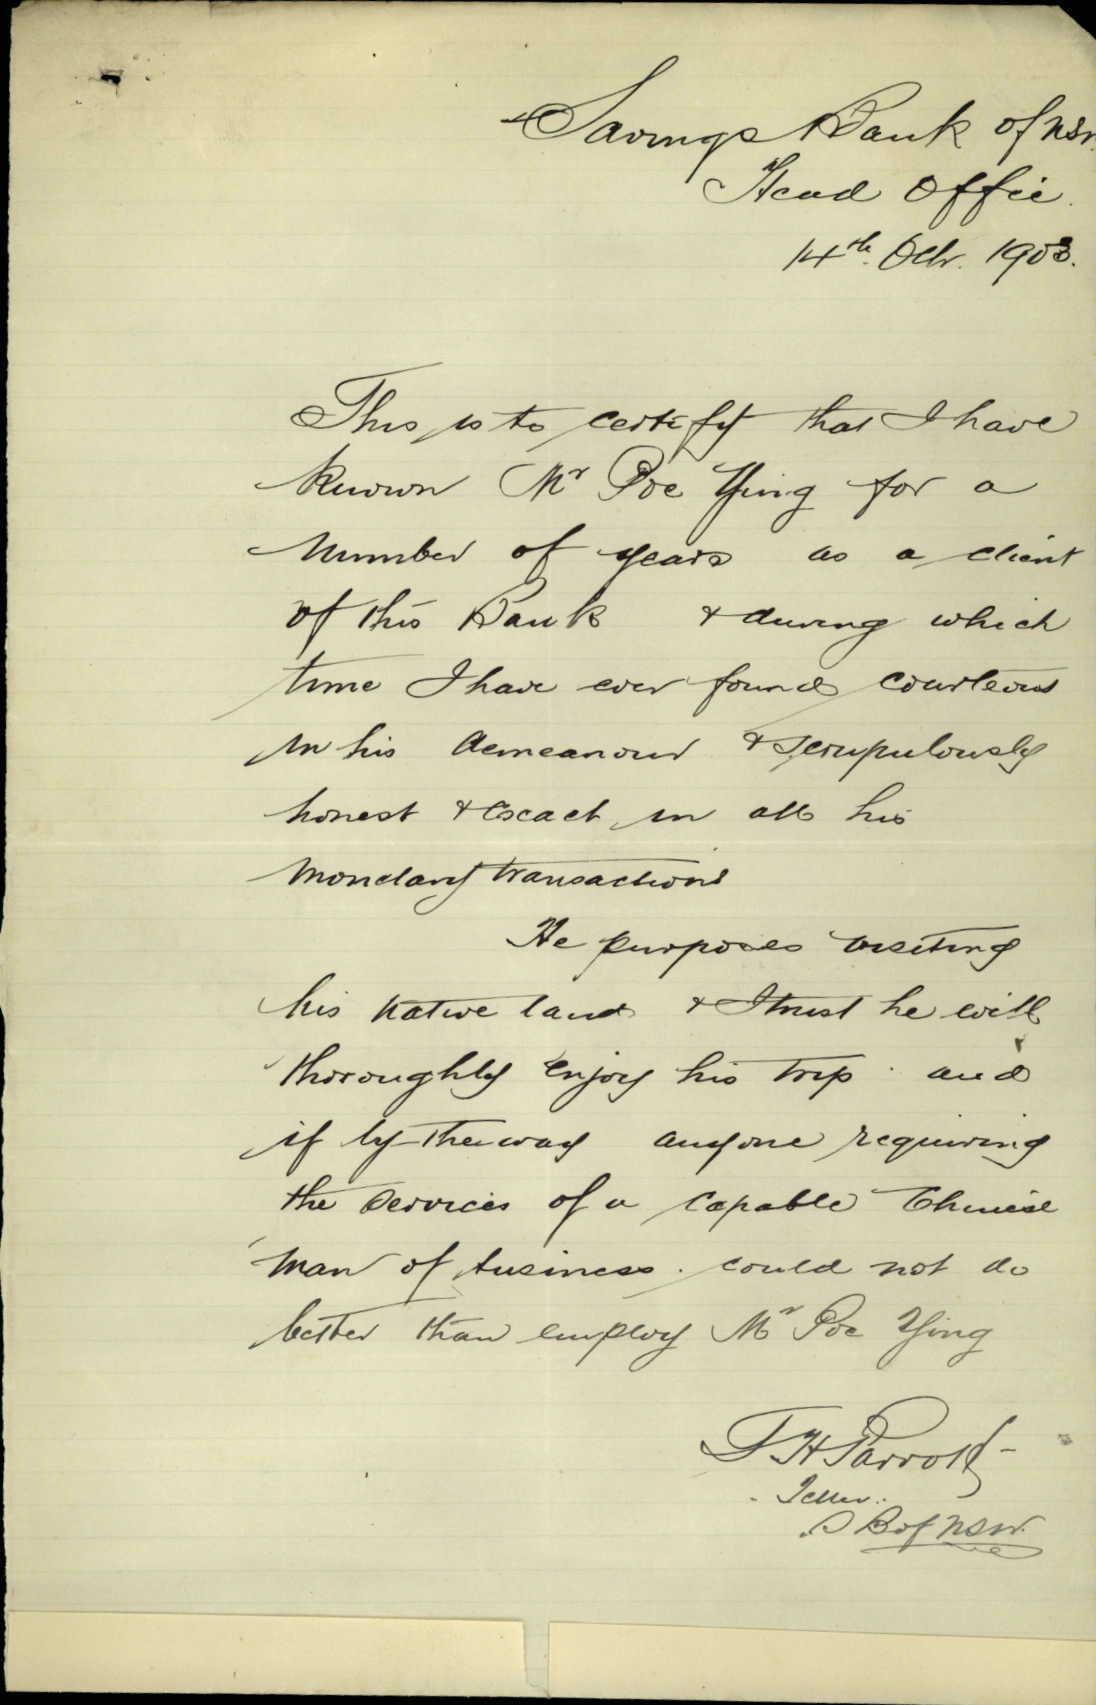 Savings Bank of NSW.
Head Office.
14th. Octr. 1903.
This is to certify that I have
known Mr Poe Ying for a
number of years as a client
of this Bank & during which
time I have ever found courteous
in his demeanour & scrupulously
honest & exact in all his
monetary transactions
He purposes visiting
his native land & I trust he will
thoroughly enjoy his trip. and
if by the way anyone requiring
the services of a capable Chinese
man of business. could not do
better than employ Mr Poe Ying
F H Parrott
Teller.
S B of NSW.